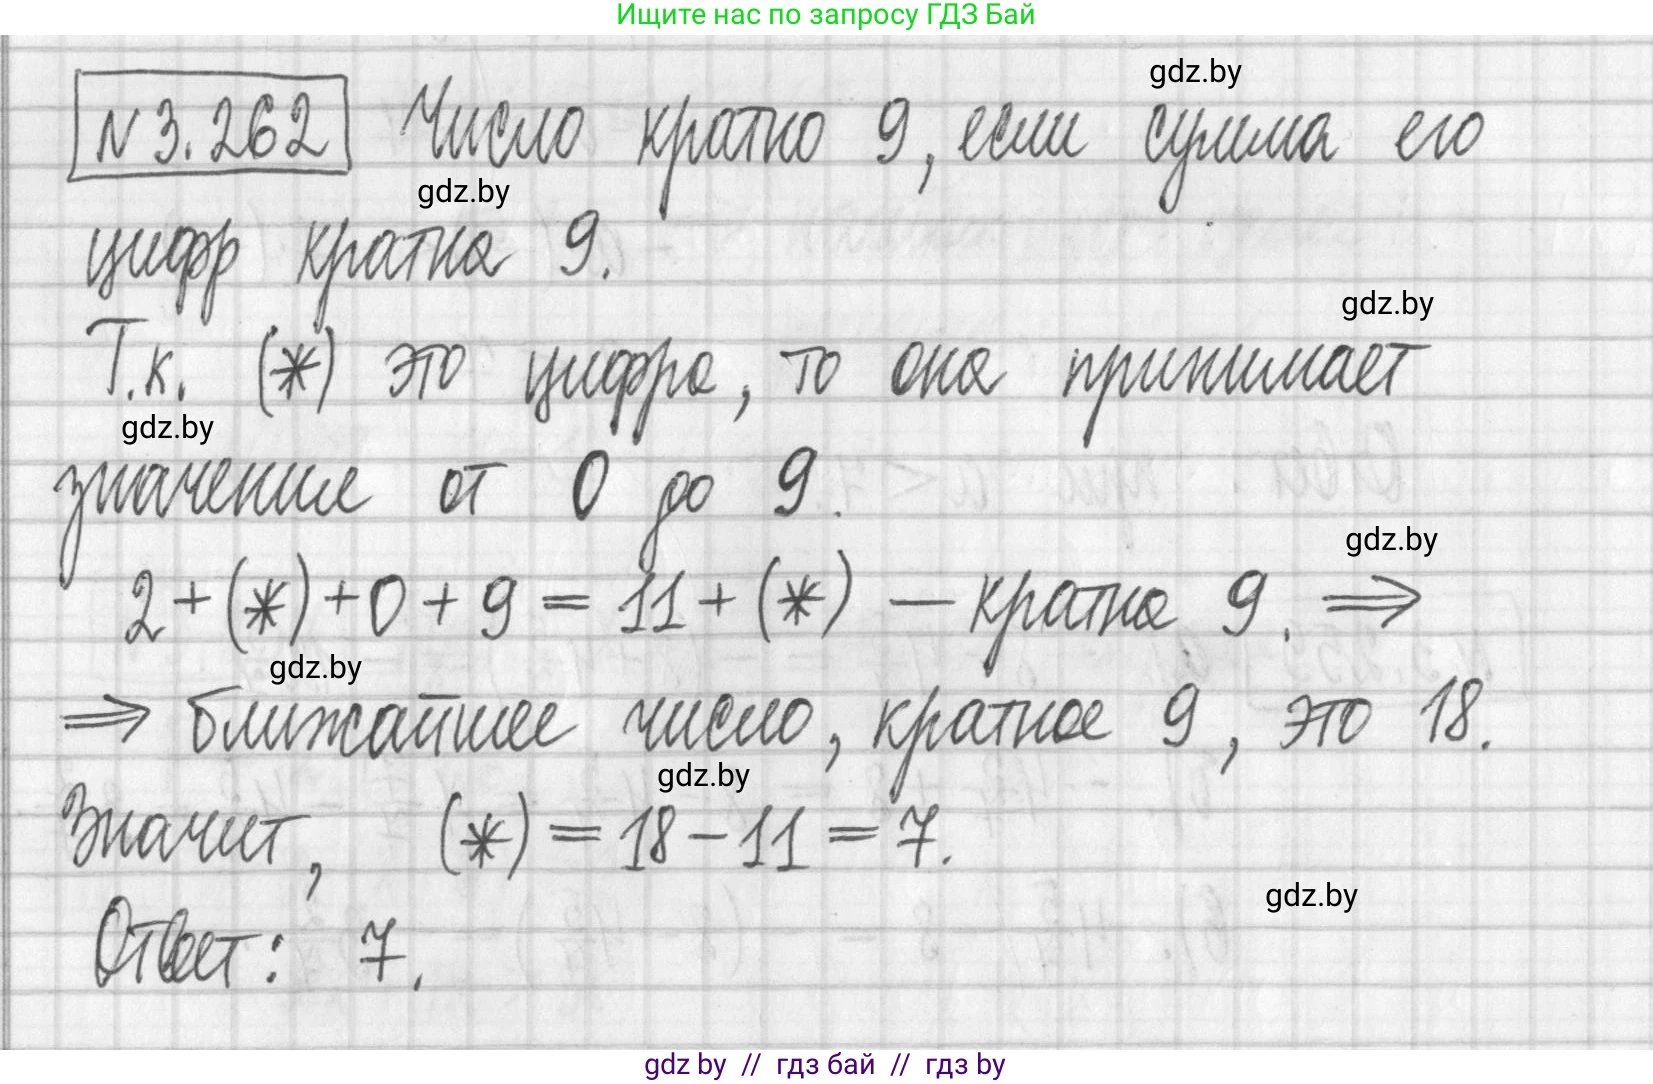 Ищите нас по запросу ГДЗ Бай
gdz.by
N 3.262 Число кратно 9, если сумма его
gdz.by
цифр кратна 9.
gdz.by
Т.к. (*) это цифра, то она принимает
gdz.by
значения от 0 до 9.
gdz.by
2+(*)+0+9=11+(*) — кратна 9. ⇒
gdz.by
⇒ ближайшее число, кратное 9, это 18.
gdz.by
Значит, (*)=18-11=7.
gdz.by
Ответ: 7.
gdz by // гдз бай // гдз by